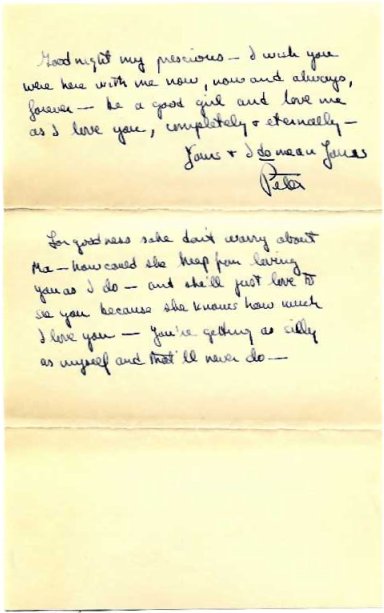 Goodnight my prescious — I wish you
were here with me now, now and always,
forever — be a good girl and love me
as I love you, completely & eternally —
Yours & I do mean Yours
Peter
For goodness sake don't worry about
Ma — how could she keep from loving
you as I do — and she'll just love to
see you because she knows how much
I love you — You're getting as silly
as myself and that'll never do —